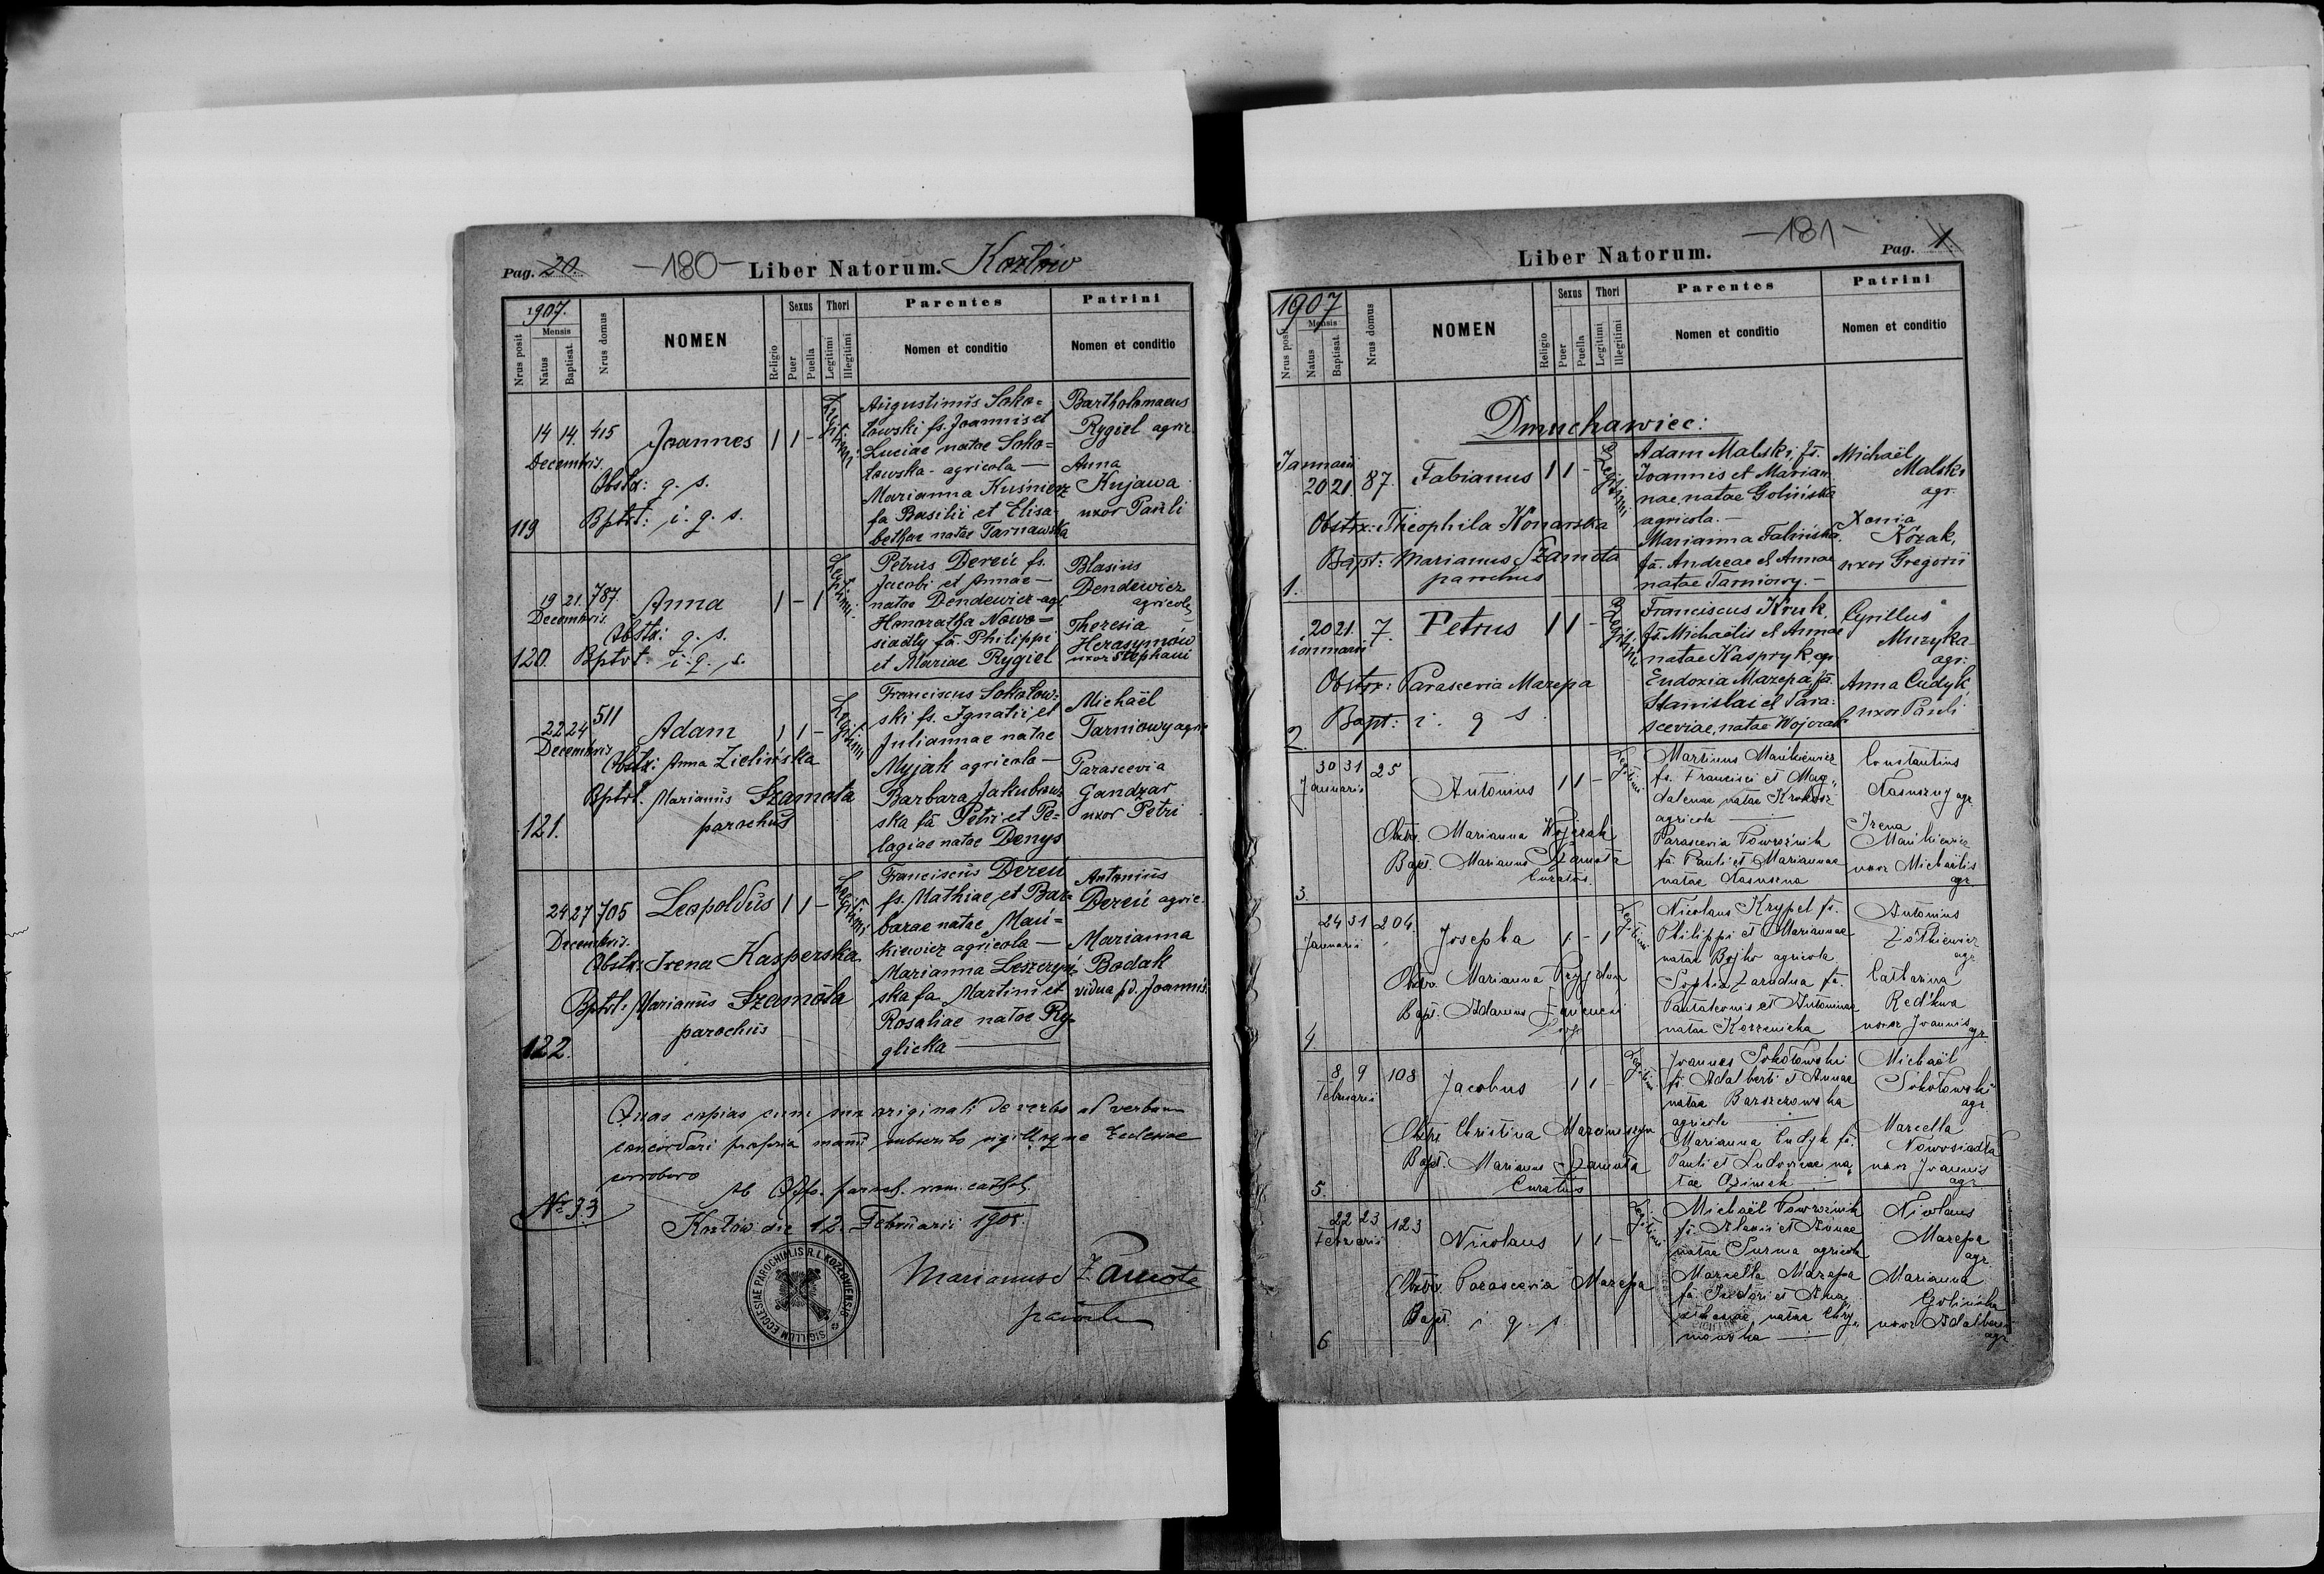 Pag. 20. -180- Liber Natorum. Kozłów
1907.
Nrus posit
Mensis
Natus
Baptisat.
Nrus domus
NOMEN
Religio
Sexus
Puer
Puella
Thori
Legitimi
Illegitimi
Parentes
Nomen et conditio
Patrini
Nomen et conditio
119
14 14. 415
Decembris.
Joannes 1 1 -
Legitimi
Obstx: q. s.
Bptvt: i. q. s.
Augustinus Soko=
łowski fs. Joannis et
Luciae natae Soko=
łowska - agricola —
Marianna Kuśnierz
fa Basilii et Elisa-
bethae natae Tarnawska
Bartholomaeus
Rygiel agric.
Anna
Kujawa
uxor Pauli
120.
19 21. 787.
Decembris
Anna 1 - 1
Legitimi
Obstx: q. s.
Bptvt: i. q. s.
Petrus Dereń fs.
Jacobi et Annae —
natae Dendewicz - agr.
Honoratha Nowo=
siadły fa. Philippi
et Mariae Rygiel
Blasius
Dendewicz
agricola
Theresia
Herasymów
uxor Stephani
121.
22 24 511
Decembris
Adam 1 1 -
Legitimi
Obstx: Anna Zielińska
Bptvt. Marianus Szamota
parochus
Franciscus Sokołow=
ski fs. Ignatii et
Juliannae natae
Myjak agricola —
Barbara Jakubow=
ska fa Petri et Pe=
lagiae natae Denys
Michaël
Tarnowy agric
Parascevia
Gandzar
uxor Petri
122.
24 27 705
Decembris.
Leopoldus 1 1 -
Legitimi
Obstx: Irena Kasperska
Bptvt: Marianus Szamota
parochus
Franciscus Dereń
fs. Mathiae et Bar=
barae natae Mań=
kiewicz agricola —
Marianna Leszczyń=
ska fa Martini et
Rosaliae natae Ry=
glicka
Antonius
Dereń agric.
Marianna
Bodak
vidua pd. Joannis.
Quas copias cum suo originali de verbo ad verbum
concordari propria manu subscribo sigilloque Ecclesiae
corroboro
Nr 33
Ab Offo. paroch. rom. cathol.
Kozłów die 12. Februarii 1908.
Marianus Szamota
paroch
SIGILLUM ECCLESIAE PAROCHIALIS R. L. KOZŁOVIENSIS
Liber Natorum. -181- Pag. 1.
1907
Nrus posit
Mensis
Natus
Baptisat.
Nrus domus
NOMEN
Religio
Sexus
Puer
Puella
Thori
Legitimi
Illegitimi
Parentes
Nomen et conditio
Patrini
Nomen et conditio
Dmuchawiec:
1.
Januarii
20 21. 87. Fabianus 1 1 -
Legitimi
Obstx: Theophila Konarska
Bapt: Marianus Szamota
parochus
Adam Malski, fs.
Joannis et Marian-
nae, natae Golińska
agricola. —
Marianna Falińska,
fa. Andreae et Annae
natae Tarnowy. —
Michaël
Malski
agr.
Xenia
Kozak,
uxor Gregorii
2.
20 21. 7. Petrus 1 1 -
Januarii
Legitimi
Obstx: Parascevia Mazepa
Bapt: i. q. s.
Franciscus Kruk,
fs. Michaëlis et Annae
natae Kaspryk, agr.
Eudoxia Mazepa, fa.
Stanislai et Para-
sceviae, natae Wojczak
Cyrillus
Muzyka
agr.
Anna Cudyk,
uxor Pauli
3.
30 31 25
Januarii
Antonius 1 1 -
Legitimi
Obstx. Marianna Wojczak
Bapt. Marianus Szamota
Curatus.
Martinus Mańkiewicz
fs. Francisci et Mag-
dalenae natae Krokosz
agricola
Parascevia Powroźnik
fa. Pauli et Mariannae
natae Nasuszna
Constantinus
Nasuszny agr.
Irena
Mańkiewicz
uxor Michaëlis
agr.
4.
24 31 204.
Januarii
Josepha 1 - 1
Legitimi
Obstx. Marianna Prygidon
Bapt. Adamus
Nicolaus Krypel fs.
Philippi et Mariannae
natae Bojko agricola
Sophia Zarudna fa.
Pantaleonis et Antoninae
natae Korzenicka
Antonius
Żółkiewicz
agr.
Catharina
Red'kwa
uxor Joannis
agr.
5.
8 9 108
Februarii
Jacobus 1 1 -
Legitimi
Obstx Christina Marcineszyn
Bapt. Marianus Szamota
Curatus
Joannes Sokołowski
fs. Adalberti et Annae
natae Barszczowska
agricola
Marianna Cudyk fa.
Pauli et Ludovicae na-
tae Ozimek
Michaël
Sokołowski
agr.
Marcella
Nowosiadła
uxor Joannis
agr.
6
22 23 123
Februarii
Nicolaus 1 1 -
Legitimi
Obstx. Parascevia Mazepa
Bapt. i q. s
Michaël Powroźnik
natae Surma agricola
Marcella Mazepa
Nicolaus
Mazepa
agr.
Marianna
Golińska
uxor Adalberti
agr.